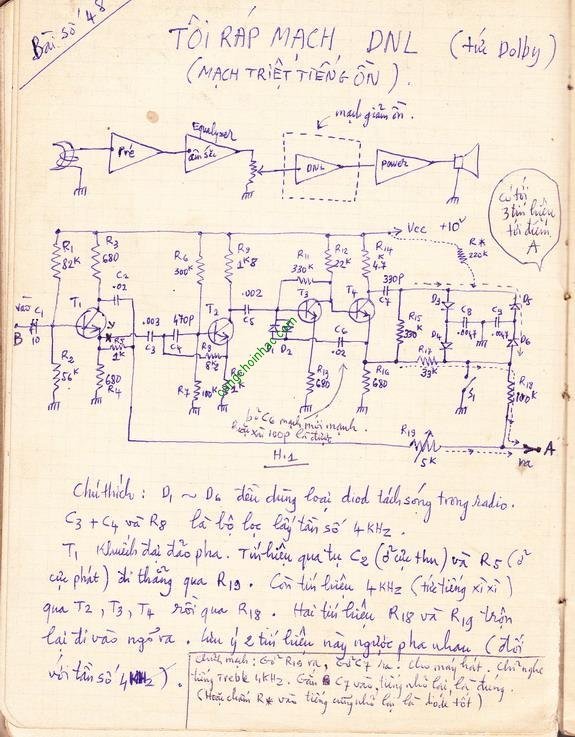 Bài số 48
TÔI RÁP MẠCH DNL (tức Dolby)
(MẠCH TRIỆT TIẾNG ỒN).
mạch giảm ồn.
Equalyser
Pré
âm sắc
DNL
Power
có tới
3 tín hiệu
tới điểm
A
Vcc +10V
R*
220K
R1
82K
R3
680
C2
.02
R6
300K
R9
1K8
R11
330K
R12
22K
R14
4.7
330P
C7
vào C1
B 10
T1
R5
1K
.003
C3
470P
C4
T2
.002
C5
T3
T4
D1 D2
C6
.02
R15
330
D3
C8
.0047
C9
.0047
D5
D4
D6
R2
56K
680
R4
R7
100K
R8
8K2
1K
R13
680
R16
680
R17
33K
S1
R18
100K
congchoinhac.com
bỏ C6 mạch mới mạnh
100P là được
R19
5K
A
ra
H.1
Chú thích : D1 ~ D6 đều dùng loại diod tách sóng trong radio.
C3 + C4 và R8 là bộ lọc lấy tần số 4KHz.
T1 khuếch đại đảo pha. Tín hiệu qua tụ C2 (ở cực thu) và R5 (ở
cực phát) đi thẳng qua R19. Còn tín hiệu 4KHz (tức tiếng xì xì)
qua T2, T3, T4 rồi qua R18. Hai tín hiệu R18 và R19 trộn
lại đi vào ngõ ra. Lưu ý 2 tín hiệu này ngược pha nhau (đối
với tần số 4KHz).
Chỉnh mạch : Gỡ R19 ra, Gỡ C7 ra. Cho máy hát. Chỉ nghe
tiếng Treble 4KHz. Gắn C7 vào, tiếng nhỏ lại, là đúng.
(Hoặc chấm R* vào tiếng cũng nhỏ lại là được tốt)